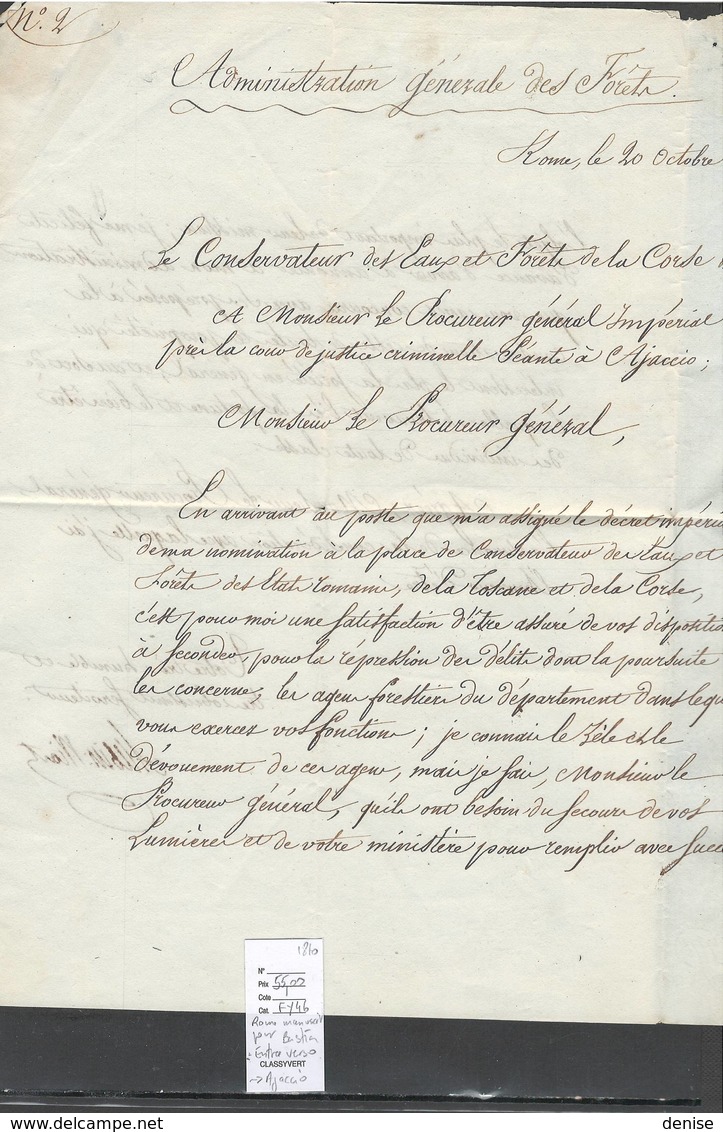 N.° 2
Administration générale des Forêts.
Rome, le 20 Octobre
Le Conservateur des Eaux et Forêts de la Corse
A Monsieur Le Procureur général Impérial
près la cour de justice criminelle Séante à Ajaccio;
Monsieur Le Procureur général,
En arrivant au poste que m'a assigné le décret impéri
de ma nomination à la place de Conservateur des Eaux et
Forêts des Etats romains, de la Toscane et de la Corse,
c'est pour moi une satisfaction d'être assuré de vos disposition
à seconder, pour la répression des délits dont la poursuite
les concerne, les agens forestiers du département dans lequ
vous exercez vos fonctions; je connais le Zèle et le
dévouement de ces agens, mais je sais, Monsieur le
Procureur général, qu'ils ont besoin du secours de vos
Lumières et de votre ministère pour remplir avec succ
1810
N°
Prix 55,00
Cote
Cat. FY46
Rome manuscrit
pour Bastia
Entrée verso
CLASSYVERT
→ Ajaccio
delcampe.net
denise